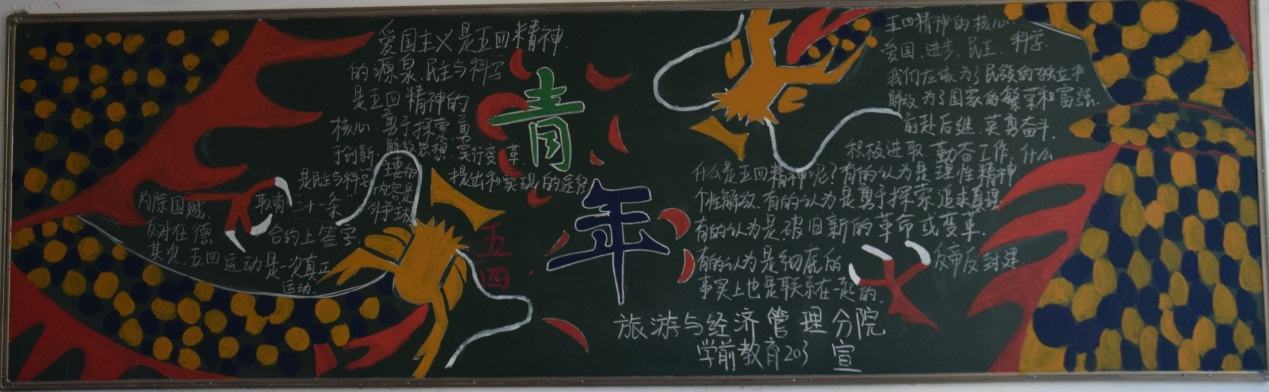 爱国主义是五四精神
的源泉.民主与科学
是五四精神的
核心.勇于探索勇
于创新.解放思想.实行变革.
是民主与科学 提出和实现的途径
主要的
内容是
内除国贼.
反对在德
取消二十一条
合约上签字
其次.五四运动是一次真正
运动.
青年
五四
五四精神的核心
爱国.进步.民主.科学.
我们应该为了民族的独立和
解放为了国家的繁荣和富强.
前赴后继.英勇奋斗.
积极进取 勤奋工作.什么
什么是五四精神呢?有的认为是理性精神
个性解放.有的认为是勇于探索追求真理
有的认为是破旧新的革命或变革.
有的认为是彻底的
反帝反封建.
事实上也是联系在一起的.
旅游与经济管理分院
学前教育203 宣